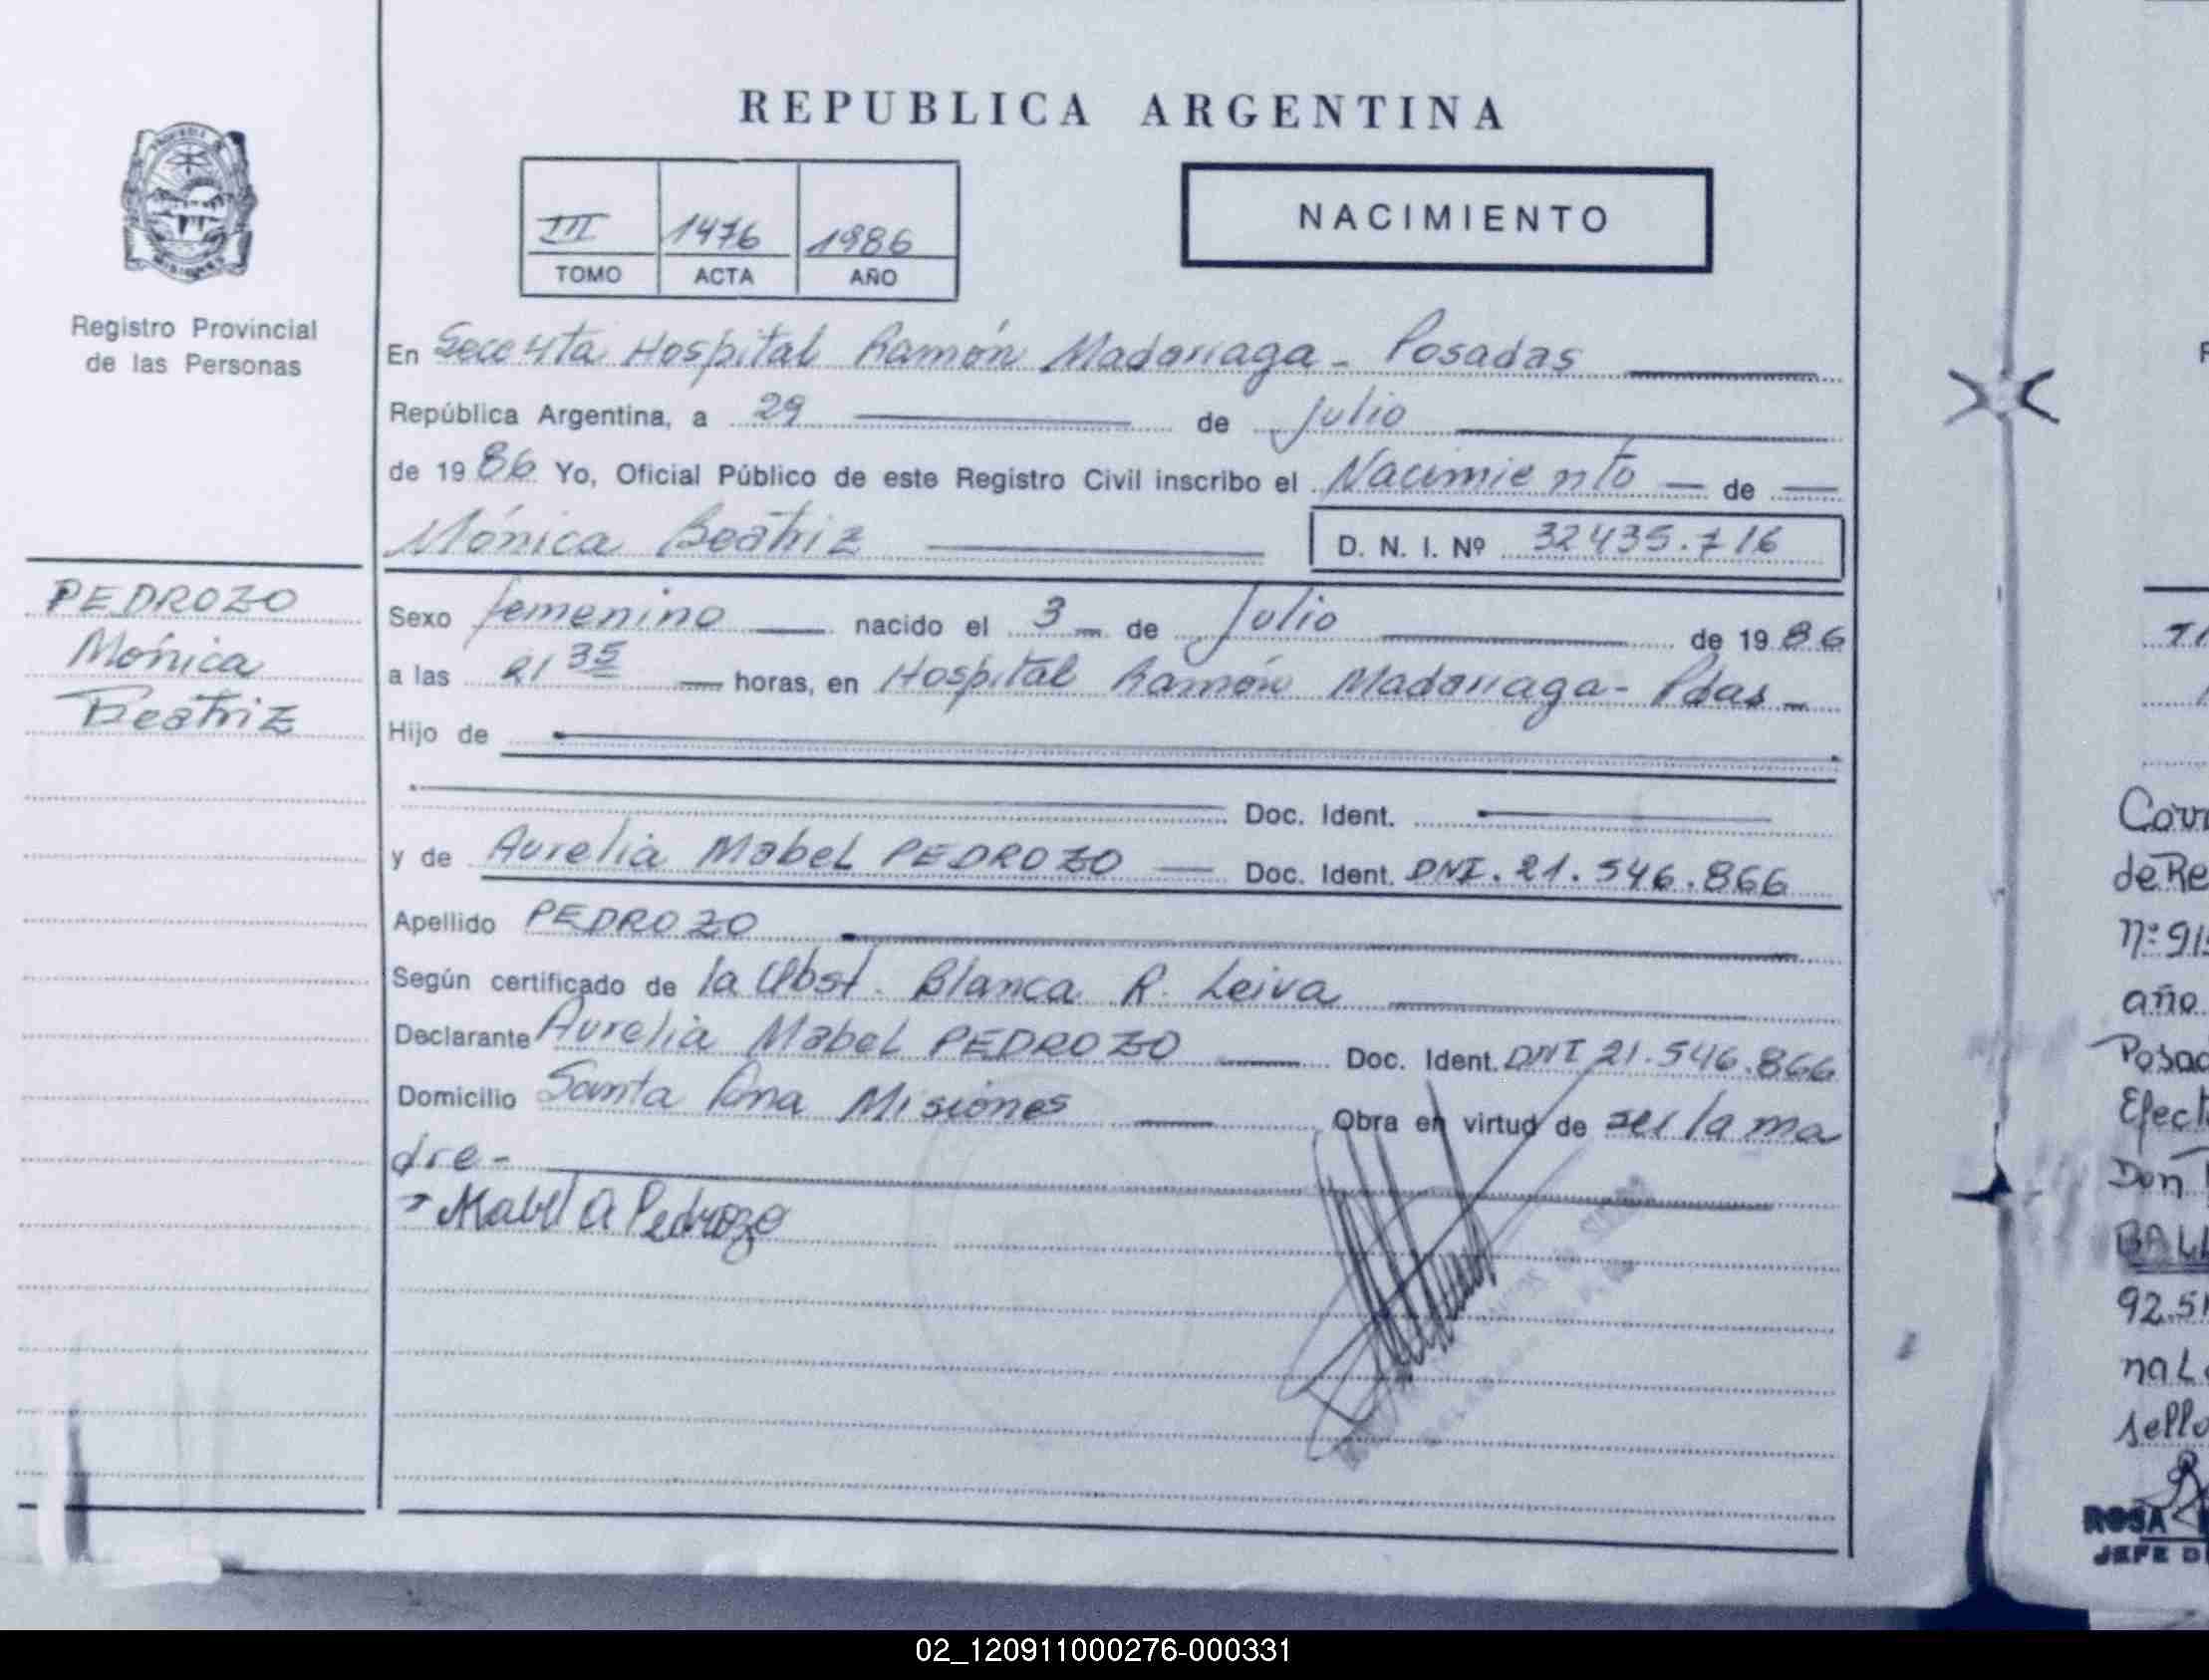 REPUBLICA ARGENTINA
III 1476 1986
TOMO ACTA AÑO
NACIMIENTO
Registro Provincial
de las Personas
En Hospital Ramón Madariaga - Posadas
República Argentina, a 29 de Julio
de 1986 Yo, Oficial Público de este Registro Civil inscribo el Nacimiento de
Mónica Beatriz
D. N. I. Nº 32435.716
PEDROZO
Mónica
Beatriz
Sexo femenino nacido el 3 de Julio de 1986
a las 21 35 horas, en Hospital Ramón Madariaga - Pdas
Hijo de
Doc. Ident.
y de Aurelia Mabel PEDROZO Doc. Ident. DNI. 21.546.866
Apellido PEDROZO
Según certificado de la Obst. Blanca R. Leiva
Declarante Aurelia Mabel PEDROZO Doc. Ident. DNI 21.546.866
Domicilio Santa Ana Misiones Obra en virtud de ser la ma
dre -
Mabel A Pedrozo
de Re
año
Posad
Efect
Don
92.5
sello
ROSA
JEFE D
02_120911000276-000331